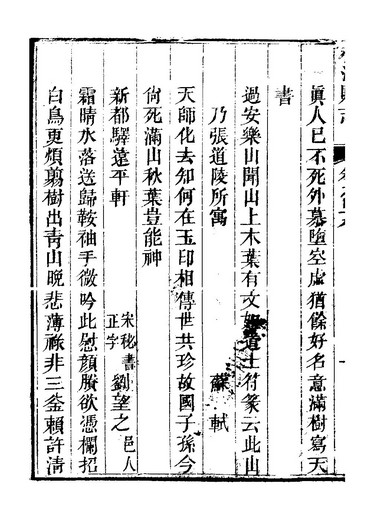 眞人已不死外慕墮空虛猶餘好名意滿樹寫天
書
過安樂山聞山上木葉有文如道士符篆云此山
乃張道陵所寓 蘇軾
天師化去知何在玉印相傳世共珍故國子孫今
尙死滿山秋葉豈能神
新都驛遠平軒 宋秘書正字劉望之邑人
霜晴水落送歸鞍袖手微吟此慰顏賸欲憑欄招
白鳥更煩剪樹出青山晚悲薄祿非三釜賴許淸